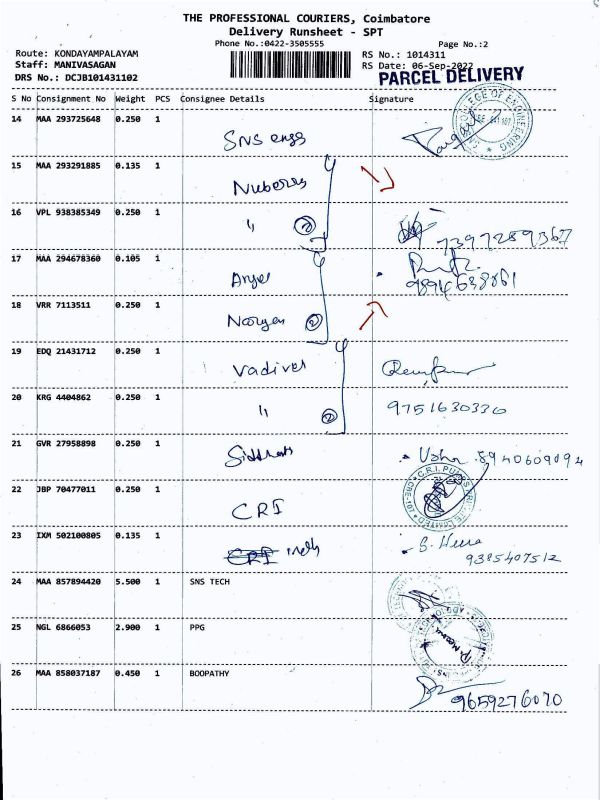 THE PROFESSIONAL COURIERS, Coimbatore
Delivery Runsheet - SPT
Phone No.:0422-3505555
Page No.:2
Route: KONDAYAMPALAYAM
RS No.: 1014311
Staff: MANIVASAGAN
RS Date: 06-Sep-2022
DRS No.: DCJB101431102
PARCEL DELIVERY
S No Consignment No Weight PCS Consignee Details Signature
14 MAA 293725648 0.250 1 SNS engg
15 MAA 293291885 0.135 1
16 VPL 938385349 0.250 1 " 2
17 MAA 294678360 0.105 1
9894638861
18 VRR 7113511 0.250 1 2
19 EDQ 21431712 0.250 1 Vadivel
20 KRG 4404862 0.250 1 " 2 9751630330
21 GVR 27958898 0.250 1 Usha 8940609094
22 JBP 70477011 0.250 1 CRI
23 IXM 502100805 0.135 1
9385407512
24 MAA 857894420 5.500 1 SNS TECH
25 NGL 6866053 2.900 1 PPG
26 MAA 858037187 0.450 1 BOOPATHY 9659276070